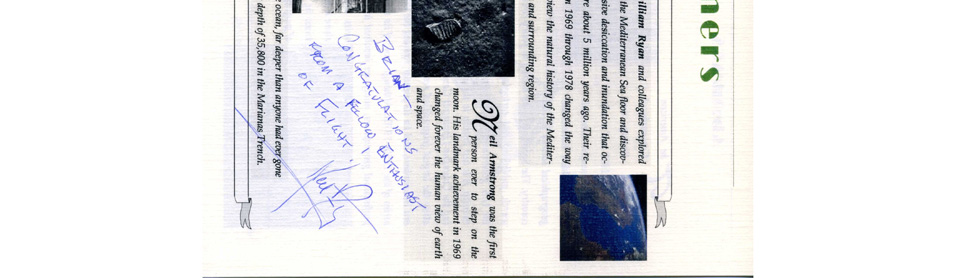 ners
illiam Ryan and colleagues explored
the Mediterranean Sea floor and discov-
sive desiccation and inundation that oc-
re about 5 million years ago. Their re-
n 1969 through 1978 changed the way
iew the natural history of the Mediter-
and surrounding region.
Neil Armstrong was the first
person ever to step on the
moon. His landmark achievement in 1969
changed forever the human view of earth
and space.
BRIAN –
CONGRATULATIONS
FROM A FELLOW ENTHUSIAST
OF FLIGHT!
ocean, far deeper than anyone had ever gone
depth of 35,800 in the Marianas Trench.